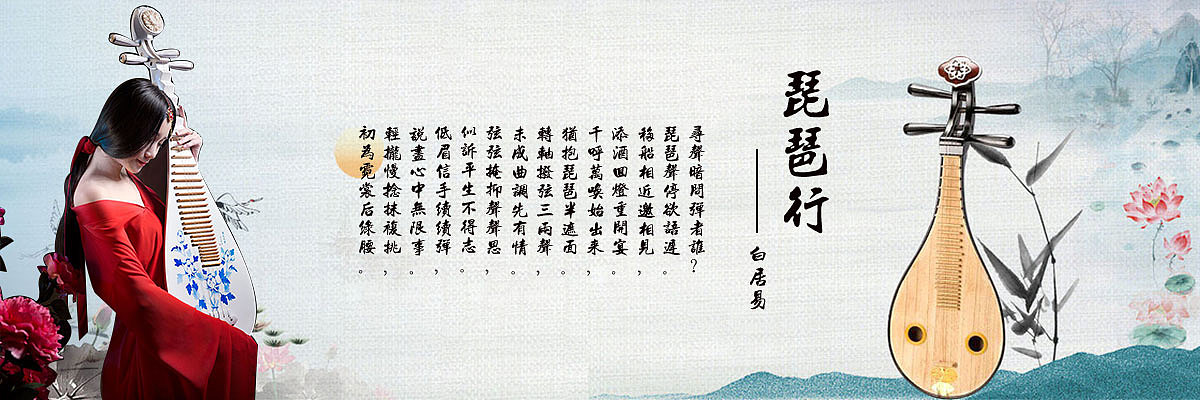 琵琶行
白居易
尋聲暗問彈者誰？
琵琶聲停欲語遲。
移船相近邀相見，
添酒回燈重開宴。
千呼萬喚始出來，
猶抱琵琶半遮面。
轉軸撥弦三兩聲，
未成曲調先有情。
弦弦掩抑聲聲思，
似訴平生不得志。
低眉信手續續彈，
說盡心中無限事。
輕攏慢捻抹複挑，
初為霓裳后綠腰。